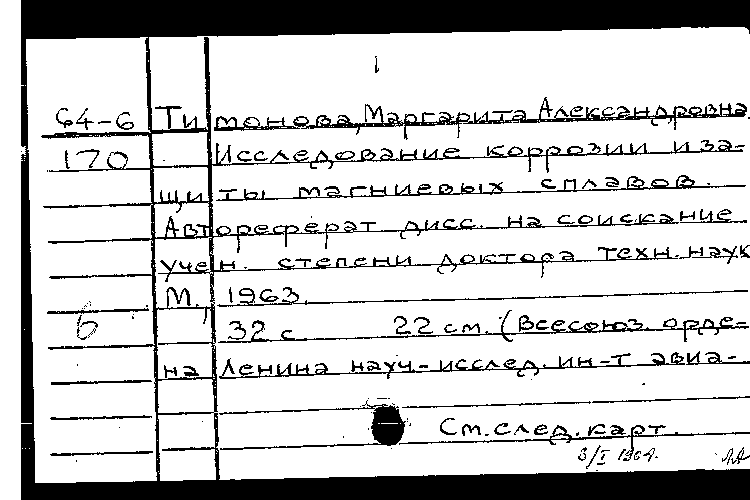 1
64-6 Тимонова, Маргарита Александровна
170 Исследование коррозии и за-
щиты магниевых сплавов.
Автореферат дисс. на соискание
учен. степени доктора техн. наук
М., 1963.
6 32 с 22 см. (Всесоюз. орде-
на Ленина науч.-исслед. ин-т авиа-
См. след. карт.
3/I 1964.